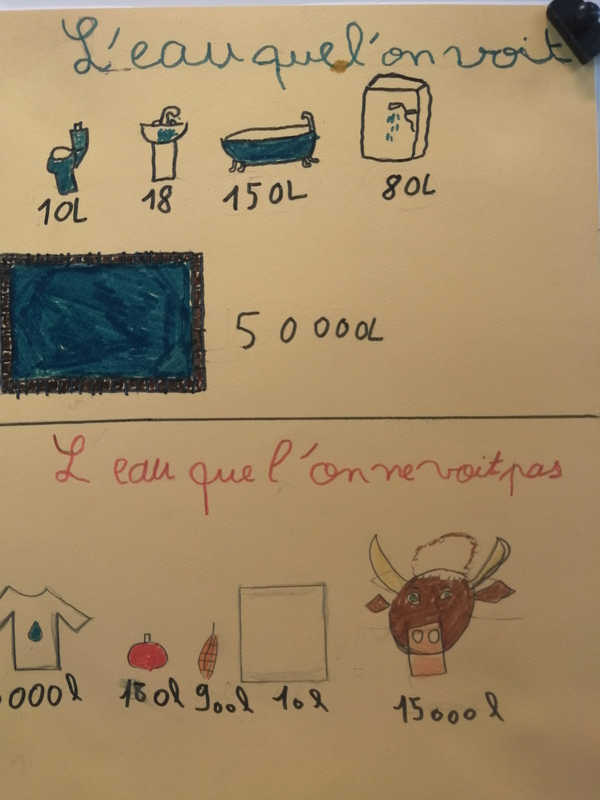 L'eau que l'on voit
10L 18 150L 80L
50000L
L eau que l'on ne voit pas
000l 180l 900l 10l 15000l